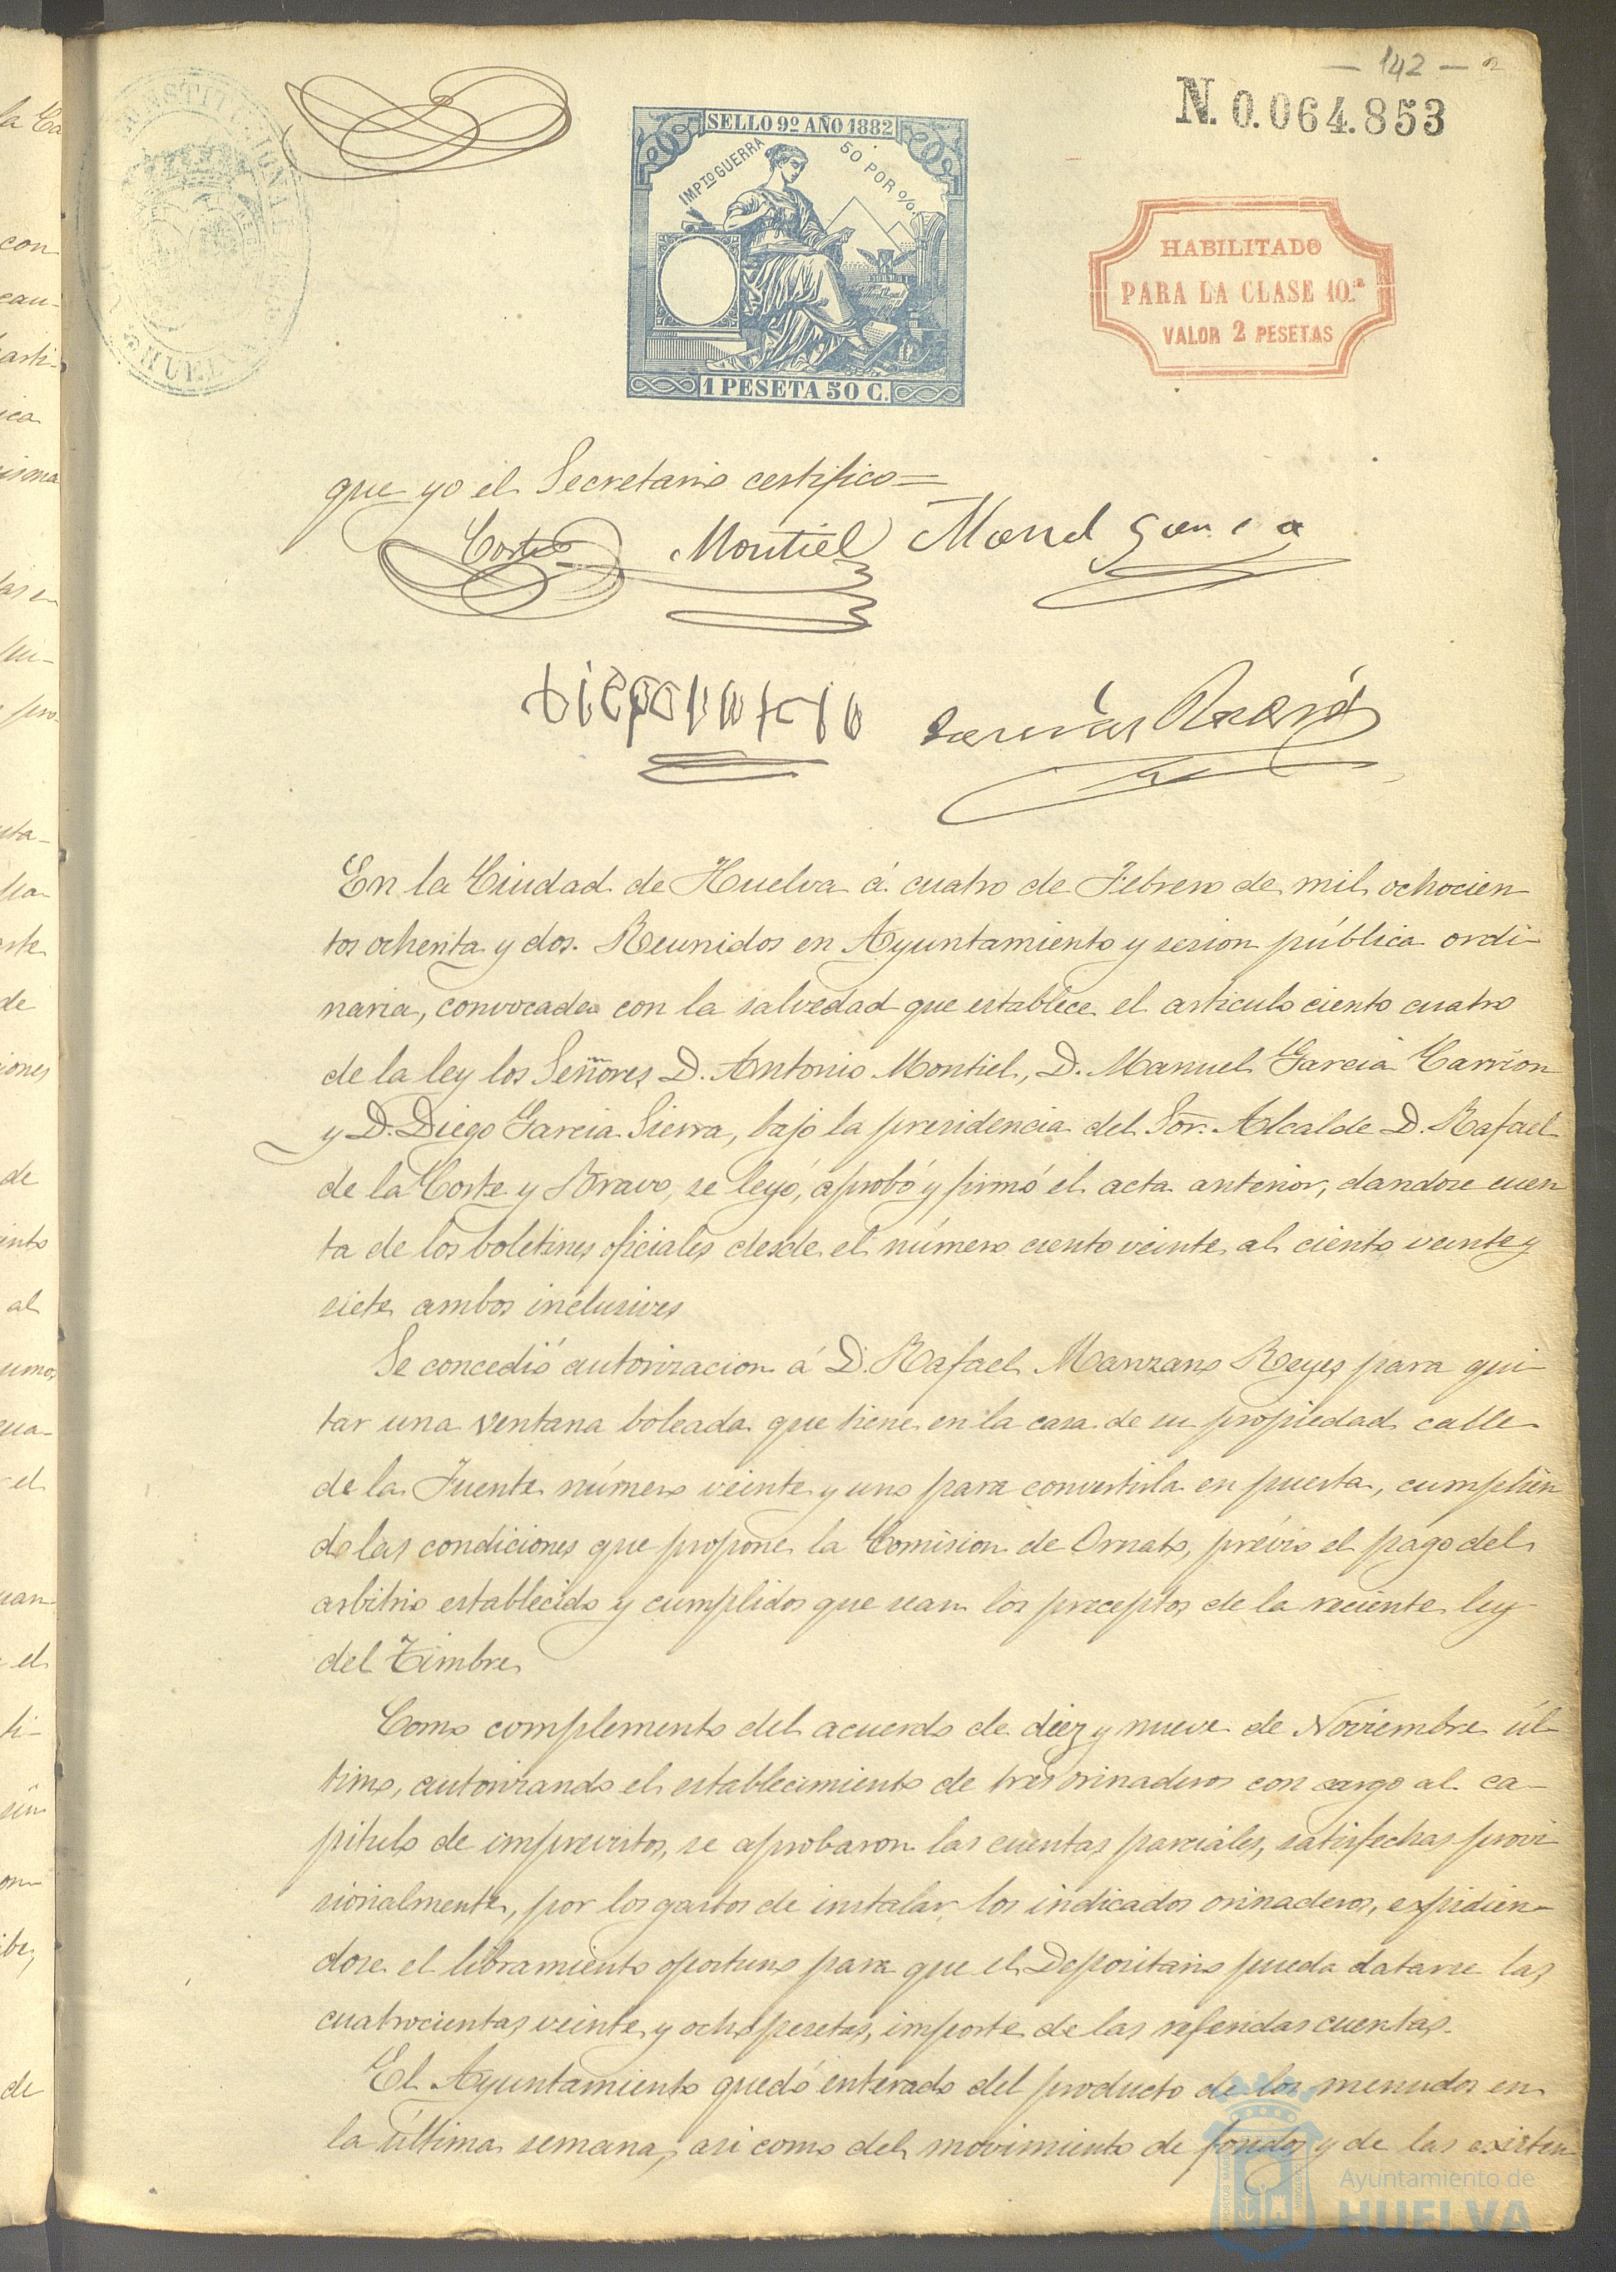 — 142 —
N. 0.064.853
SELLO 9º AÑO 1882
IMPTO GUERRA 50 POR %
1 PESETA 50 C.
HABILITADO
PARA LA CLASE 10.ª
VALOR 2 PESETAS
HUELVA
que yo el Secretario certifico=
Corte Montiel Manl Garcia
En la Ciudad de Huelva á cuatro de Febrero de mil ochocien-
tos ochenta y dos. Reunidos en Ayuntamiento y sesion pública ordi-
naria, convocada con la salvedad que establece el articulo ciento cuatro
de la ley los Señores D. Antonio Montiel, D. Manuel Garcia Carrion
y D. Diego Garcia Sierra, bajo la presidencia del Sor. Alcalde D. Rafael
de la Corte y Bravo, se leyó, aprobó y firmó el acta anterior, dandose cuen
ta de los boletines oficiales desde el número ciento veinte al ciento veinte y
siete ambos inclusives
Se concedió autorizacion á D. Rafael Manzano Reyes para qui-
tar una ventana boleada que tiene en la casa de su propiedad calle
de la Fuente número veinte y uno para convertirla en puerta, cumplien
do las condiciones que propone la Comision de Ornato, prévio el pago del
arbitrio establecido y cumplidos que sean los preceptos de la reciente ley
del Timbre
Como complemento del acuerdo de diez y nueve de Noviembre úl-
timo, autorizando el establecimiento de tres orinaderos con cargo al ca-
pitulo de imprevistos, se aprobaron las cuentas parciales, satisfechas provi
sionalmente, por los gastos de instalar los indicados orinaderos, expidien-
dose el libramiento oportuno para que el Depositario pueda datarse las
cuatrocientas veinte y ocho pesetas, importe de las referidas cuentas.
El Ayuntamiento quedó enterado del producto de los menudos en
la última semana, asi como del movimiento de fondos y de las existen
Ayuntamiento de
HUELVA